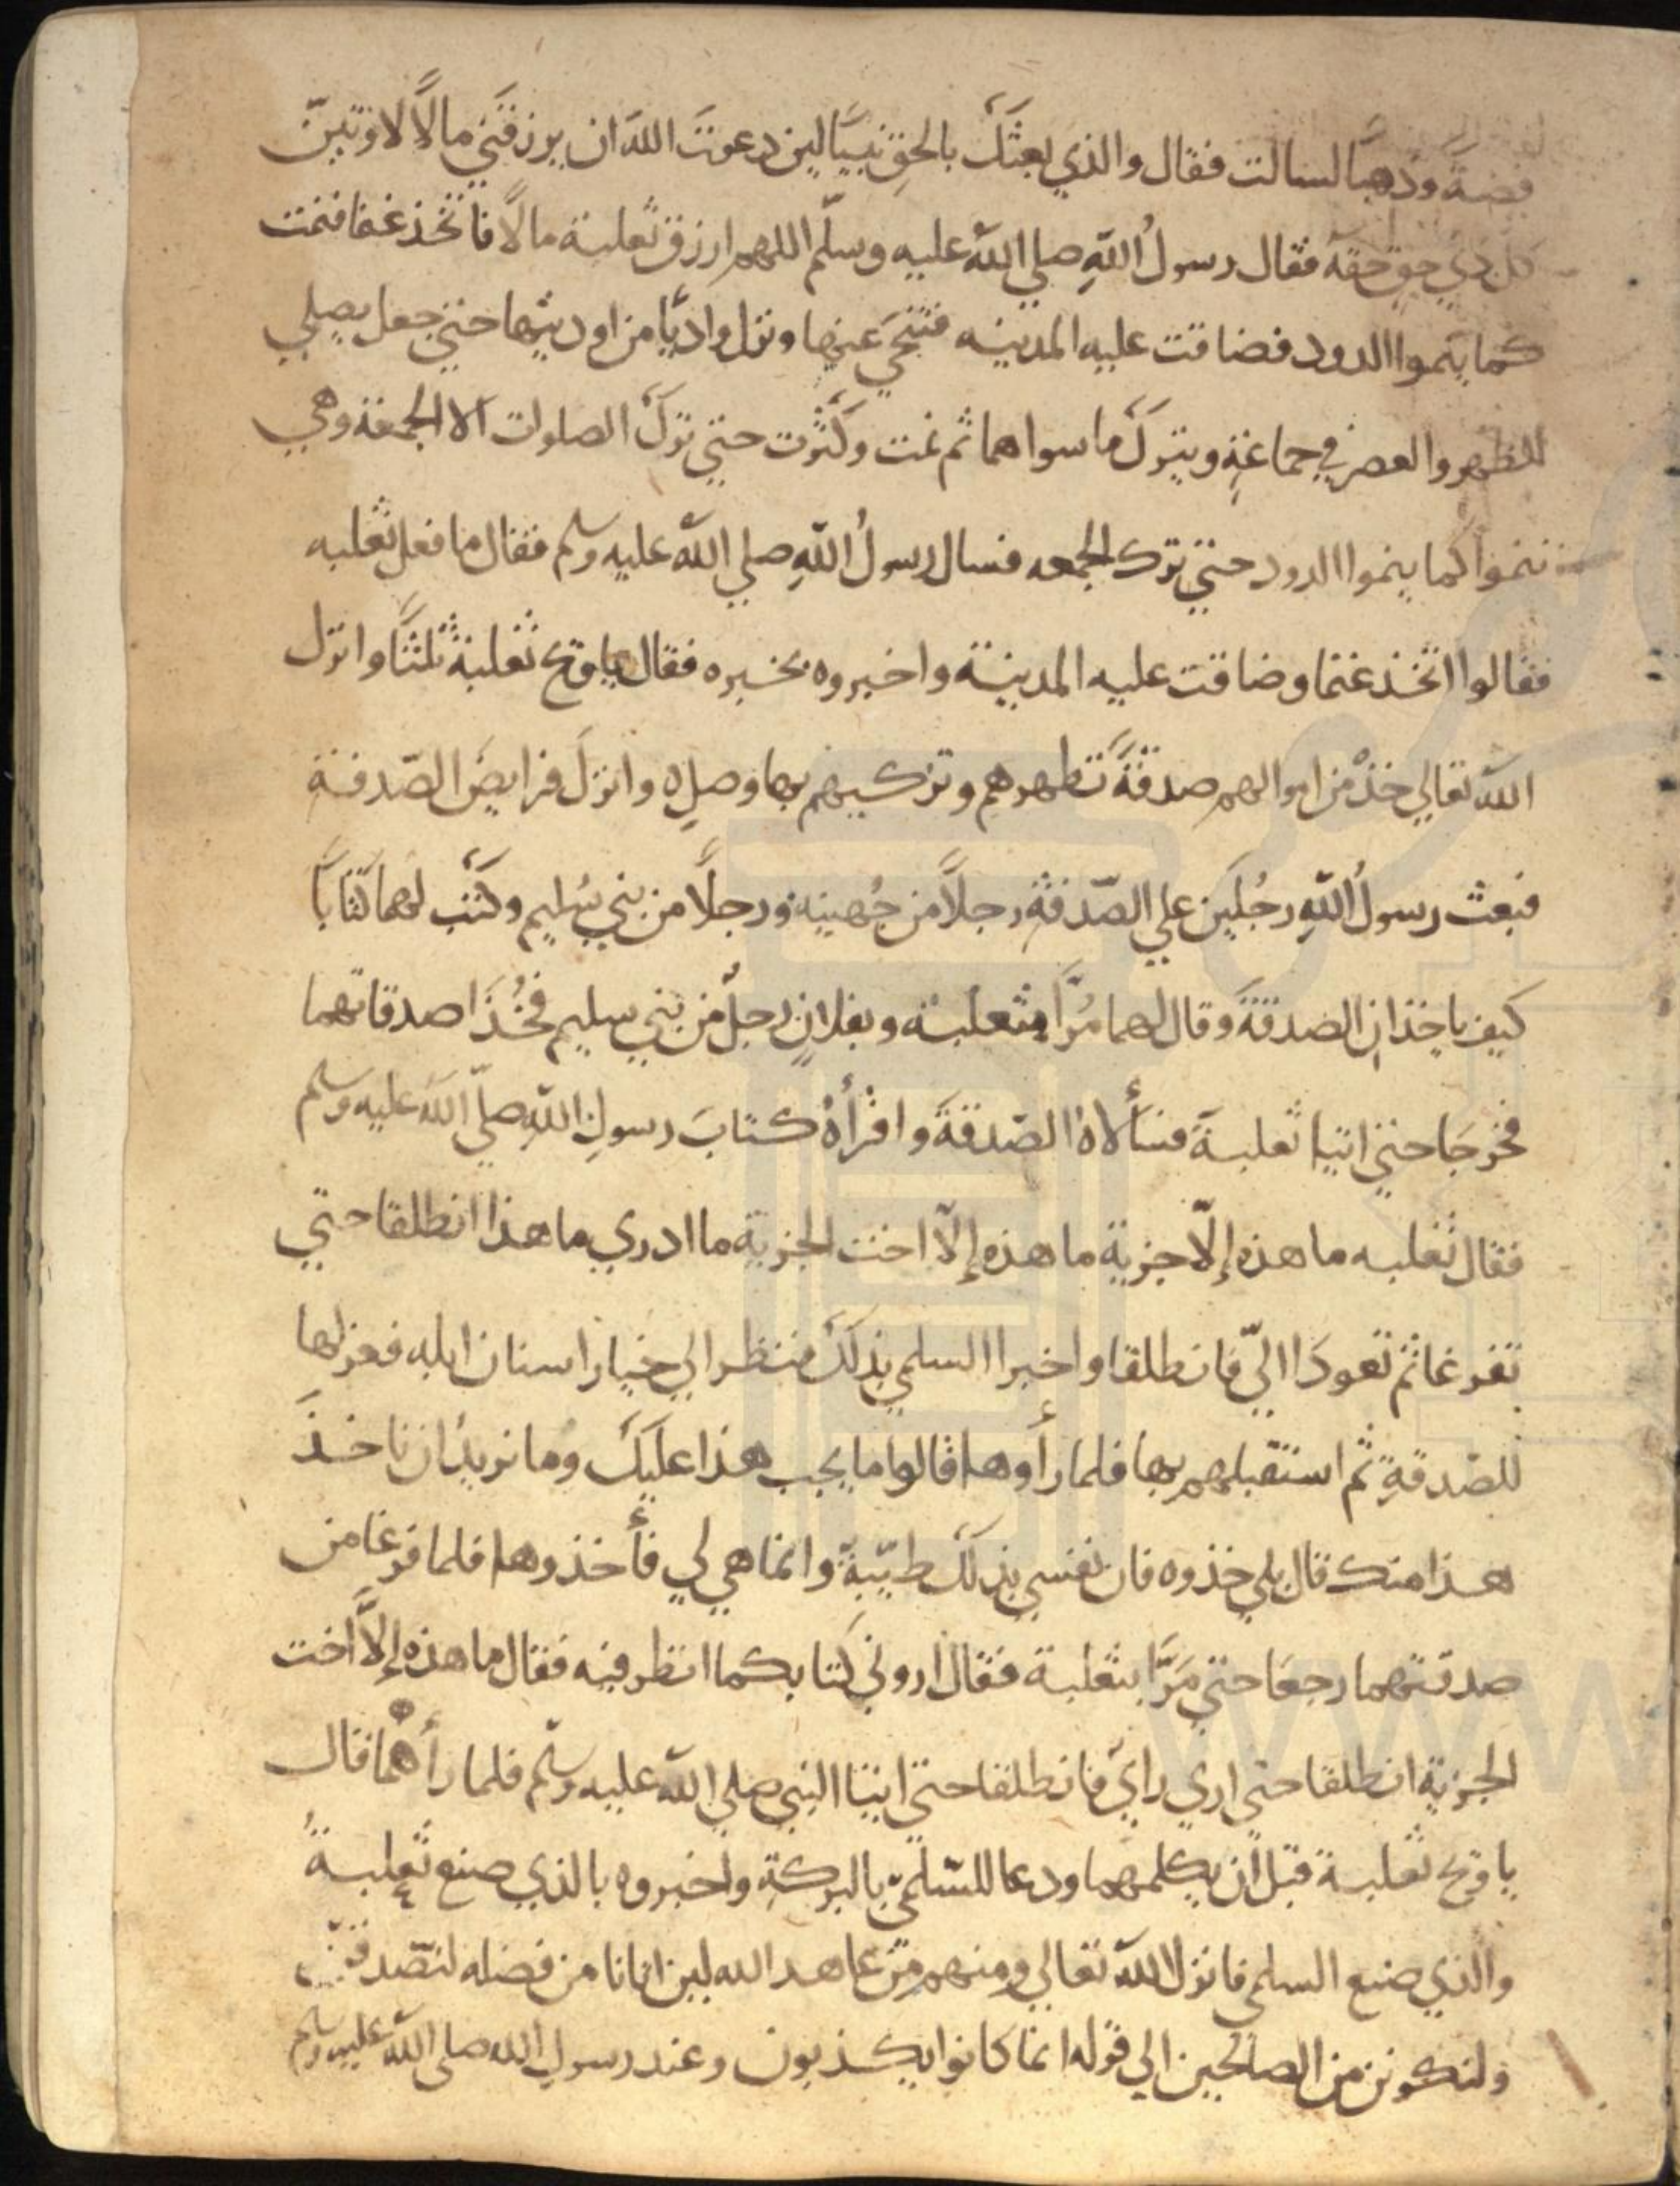 فضة وذهبًا لسالت فقال والذي بعثكَ بالحقِ نبيًا لين دعوتَ اللهَ ان يرزقَني مالًا لاوتينّ
كل ذي حقٍ حقهُ فقال رسولُ اللهِ صلي اللهُ عليه وسلّم اللهم ارزق ثعلبة مالًا فاتخذ غنما فنمت
كما ينموا الدود فضاقت عليه المدينه فتنحي عنها ونزل واديًا من اوديتها حتي جعل يصلي
الظهر والعصر في جماعةٍ ويتركَ ما سواهما ثم نمت وكثرت حتي تركَ الصلوات الا الجمعة وهي
تنموا كما ينموا الدود حتي ترك الجمعه فسال رسولُ اللهِ صلي اللهُ عليه وسلم فقال ما فعل ثعلبه
فقالوا اتخذ غنما وضاقت عليه المدينة واخبروه بخبره فقال ياويح ثعلبة ثلثًا وانزل
اللهُ تعالي خذْ من اموالهم صدقةً تطهرهم وتزكيهم بها وصلِ ه وانزلَ فرايضَ الصّدقة
فبعث رسولُ اللهِ رجُلَين علي الصّدقة رجلًا من جُهينة ورجلًا من بني سُليم وكتَب لهما كتابًا
كيف ياخذانِ الصدقةَ وقال لهما مُرَّا بثعلبة وبفلانٍ رجلٌ من بني سليم فخُذَا صدقاتهما
فخرجَا حتي اتيا ثعلبةَ فسألاهُ الصّدقةَ واقرأهُ كتابَ رسولِ اللهِ صلّي اللهُ عليه وسلم
فقال ثعلبه ما هذه إلّا جزية ما هذه إلّا اخت الجزية ما ادري ما هذا انطلقا حتي
تفرغا ثم تعودَا اليّ فانطلقا واخبرا السلمي بذلكَ فنظر الي خيار اسنان ابله فعزلها
للصّدقةِ ثم استقبلهم بها فلما رأوها قالوا ما يجب هذا عليكَ وما نريدُ ان ناخذَ
هذا منك قال بلي خذوه فان نفسي بذلكَ طيّبةٌ وانما هي لي فأخذوها فلما فرغا من
صدقتهما رجعَا حتي مَرَّا بثعلبة فقال اروني كتابكما انظر فيه فقال ما هذه إلَّا اخت
الجزية انطلقا حتي اري رايَ فانطلقا حتي اتيا النبي صلي اللهُ عليه وسلّم فلما رأهُما قال
ياويح ثعلبة قبل أن يكلمهما ودعا للسّلميِّ بالبركةِ واخبروه بالذي صنع ثعلبةُ
والّذي صنع السلمي فانزل اللهُ تعالي ومنهم من عاهد الله لين اتانا من فضله لنصّدقنّ
ولنكونن من الصالحين الي قوله انما كانوا يكذبون وعند رسولِ الله صلي اللهُ عليه وسلم